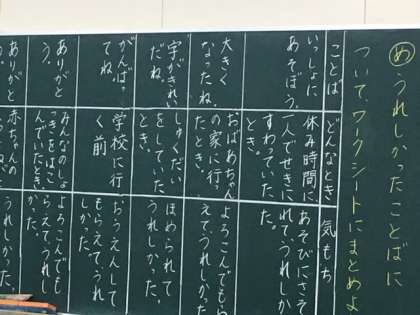 めうれしかったことばに
ついて、ワークシートにまとめよ
ことば
どんなとき
気もち
いっしょに
あそぼう。
休み時間に、
一人でせきに
すわっていた
とき。
あそびにさそ
れて、うれしか
た。
大きく
なったね。
おばあちゃん
の家に行っ
たとき。
よろこんでもら
えてうれしかった
字がきれい
だね。
しゅくだい
をしていた
とき。
ほめられて
うれしかった。
がんばっ
てね。
学校に行
く前
おうえんして
もらえて、うれ
しかった。
ありがと
う。
みんなのしょ
っきをはこ
んでいたとき。
よろこんでも
らえてうれし
かった。
ありがと
赤ちゃんの
うれしかった